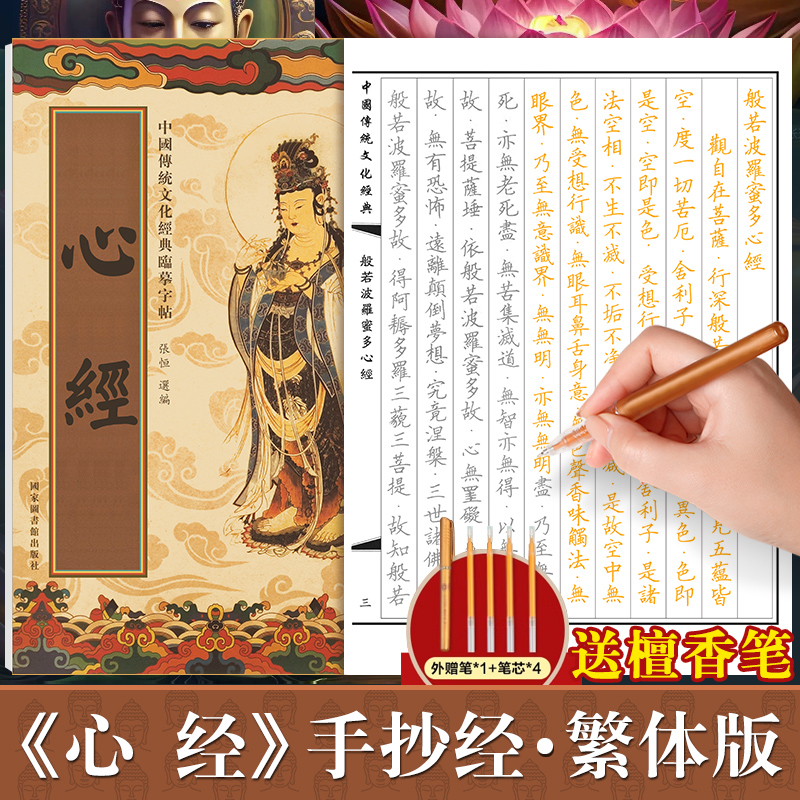 中國傳統文化經典臨摹字帖
張恒 選編
心經
國家圖書館出版社
般若波羅蜜多心經
觀自在菩薩·行深般 五蘊皆
空·度一切苦厄·舍利子 異色·色即
是空·空即是色·受想行 舍利子·是諸
法空相·不生不滅·不垢不淨 減·是故空中無
色·無受想行識·無眼耳鼻舌身意 色聲香味觸法·無
眼界·乃至無意識界·無無明·亦無無明盡·乃至無
死·亦無老死盡·無苦集滅道·無智亦無得·以
故·菩提薩埵·依般若波羅蜜多故·心無罣礙
故·無有恐怖·遠離顛倒夢想·究竟涅槃·三世諸佛
般若波羅蜜多故·得阿耨多羅三藐三菩提·故知般若
中國傳統文化經典
般若波羅蜜多心經
三
外赠笔*1+笔芯*4
送檀香笔
《心 经》手抄经·繁体版